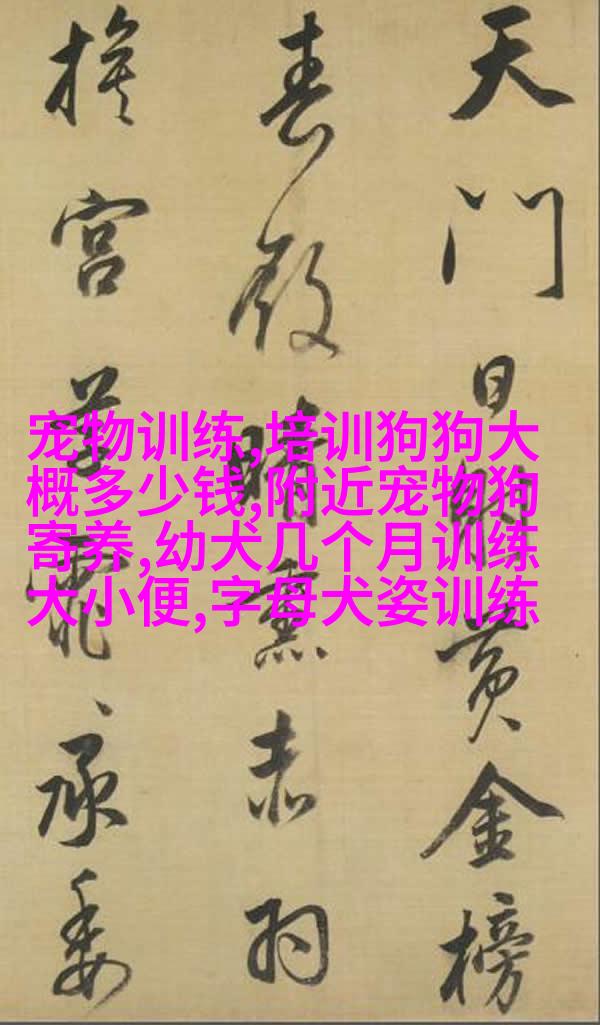 天门日射黄金榜
春殿晴熏赤羽
旗宫草霏〻承委
宠物训练,培训狗狗大
概多少钱,附近宠物狗
寄养,幼犬几个月训练
大小便,字母犬姿训练